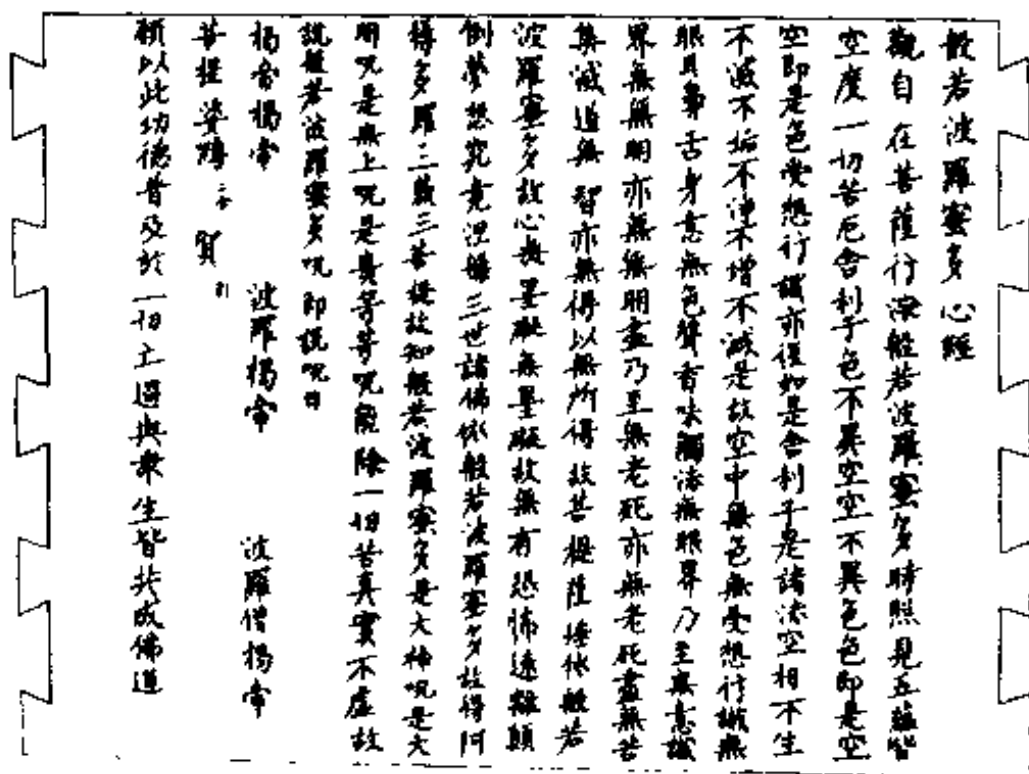 般若波羅蜜多心經
觀自在菩薩行深般若波羅蜜多時照見五蘊皆
空度一切苦厄舍利子色不異空空不異色色即是空
空即是色受想行識亦復如是舍利子是諸法空相不生
不滅不垢不淨不增不減是故空中無色無受想行識無
眼耳鼻舌身意無色聲香味觸法無眼界乃至無意識
界無無明亦無無明盡乃至無老死亦無老死盡無苦
集滅道無智亦無得以無所得故菩提薩埵依般若
波羅蜜多故心無罣礙無罣礙故無有恐怖遠離顛
倒夢想究竟涅槃三世諸佛依般若波羅蜜多故得阿
耨多羅三藐三菩提故知般若波羅蜜多是大神呪是大
明呪是無上呪是無等等呪能除一切苦真實不虛故
說般若波羅蜜多呪即說呪曰
揭帝揭帝 波羅揭帝 波羅僧揭帝
菩提
願以此功德普及於一切土迴與眾生皆共成佛道